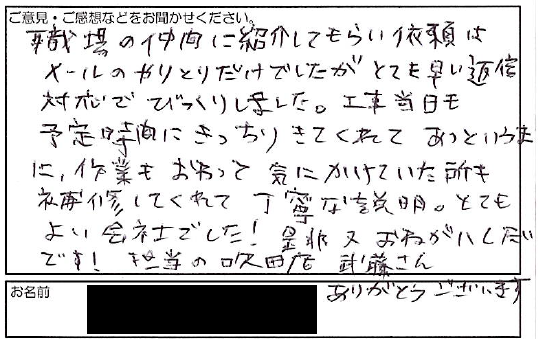 ご意見・ご感想などをお聞かせください。
職場の仲間に紹介してもらい依頼は
メールのやりとりだけでしたがとても早い返信
対応でびっくりしました。工事当日も
予定時間にきっちりきてくれて あっというま
に、作業もおわって 気にかけていた所も
補修してくれて 丁寧な説明。とても
よい会社でした! 是非又おねがいしたい
です! 担当の吹田店 武藤さん
お名前
ありがとうございます